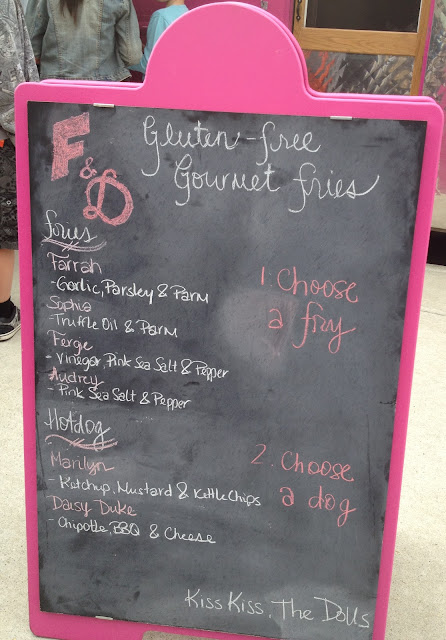 F & D
Gluten-free
Gourmet fries
fries
Farrah
- Garlic, Parsley & Parm
Sophia
- Truffle Oil & Parm
Fergie
- Vinegar, Pink Sea Salt & Pepper
Audrey
- Pink Sea Salt & Pepper
1. Choose
a fry
Hotdog
Marilyn
- Ketchup, Mustard & Kettle Chips
Daisy Duke
- Chipotle, BBQ & Cheese
2. Choose
a dog
Kiss Kiss, The Dolls